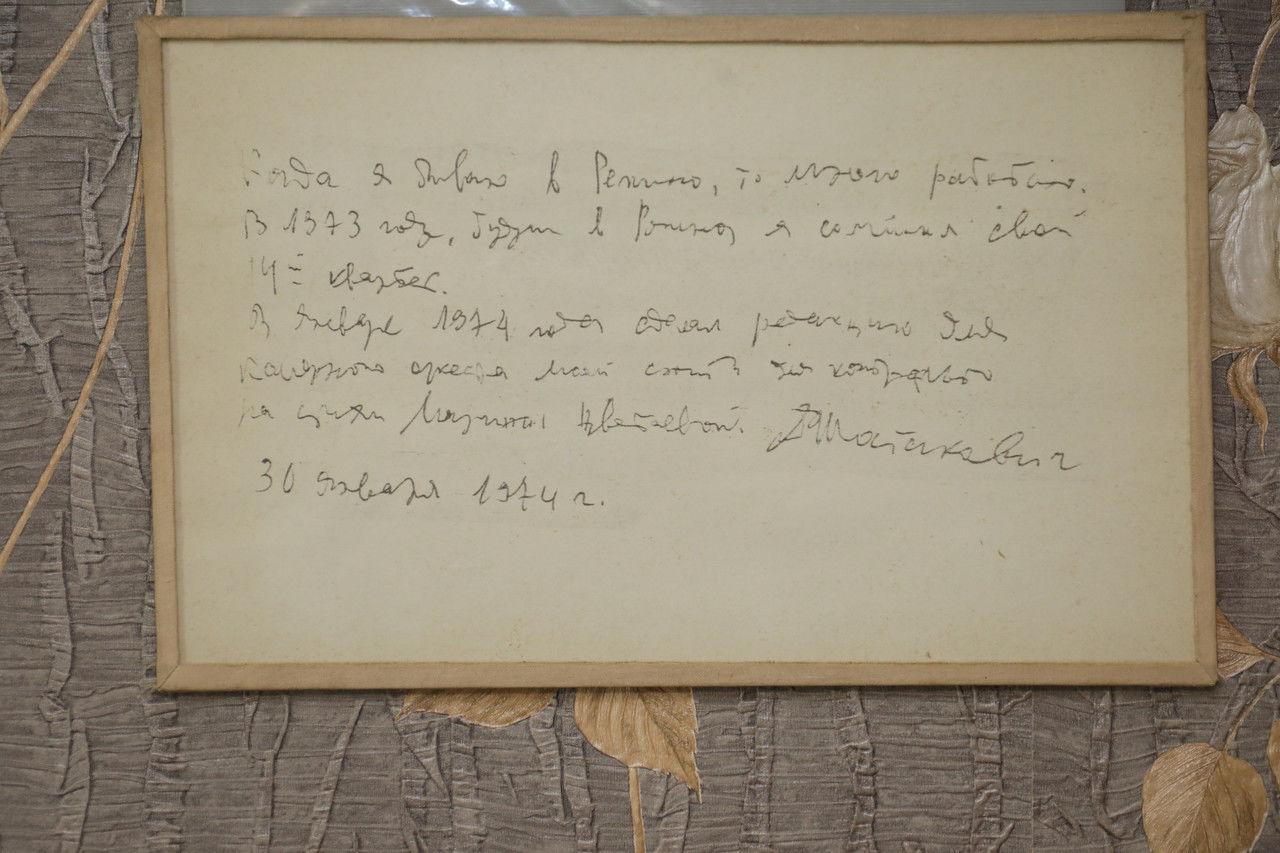 Когда я бываю в Репино, то много работаю.
В 1973 году, будучи в Репино, я сочинил свой
14й квартет.
В январе 1974 года сделал редакцию для
камерного оркестра моей сюиты для контральто
на стихи Марины Цветаевой. ДШостакович
30 января 1974 г.